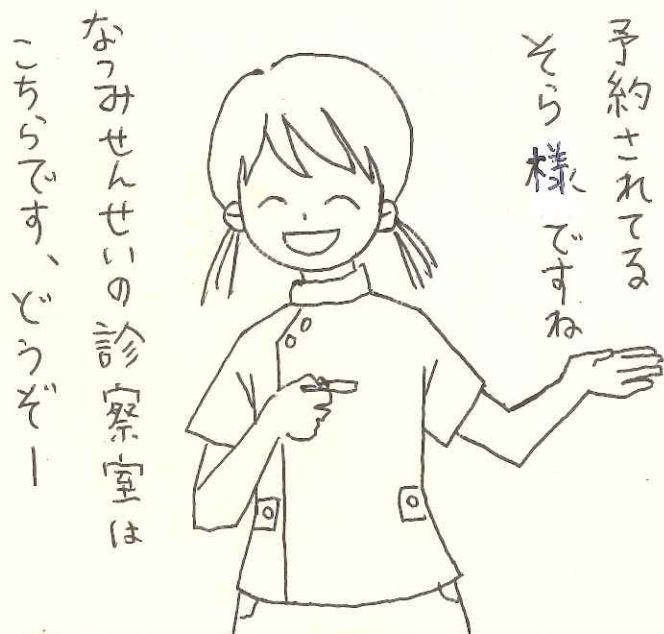 予約されてる
そら様ですね
なつみせんせいの診察室は
こちらです、どうぞー